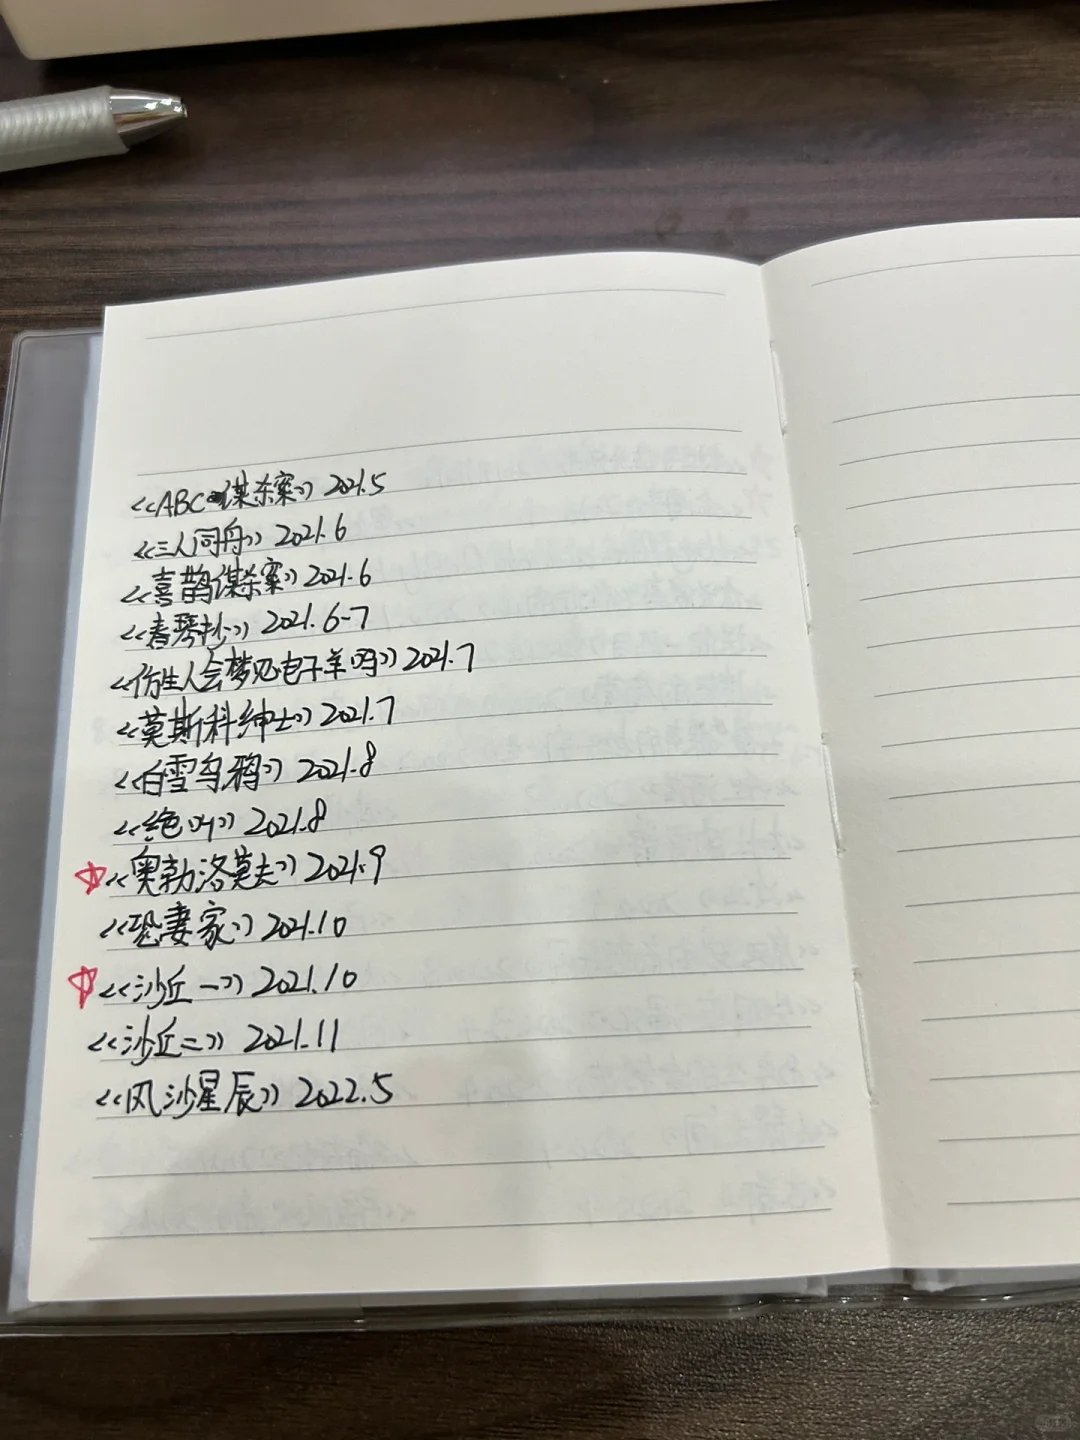 《ABC谋杀案》 2021.5
《三人同舟》 2021.6
《喜鹊谋杀案》 2021.6
《春琴抄》 2021.6-7
《仿生人会梦见电子羊吗》 2021.7
《莫斯科绅士》 2021.7
《白雪乌鸦》 2021.8
《绝叫》 2021.8
☆《奥勃洛莫夫》 2021.9
《恐妻家》 2021.10
☆《沙丘一》 2021.10
《沙丘二》 2021.11
《风沙星辰》 2022.5